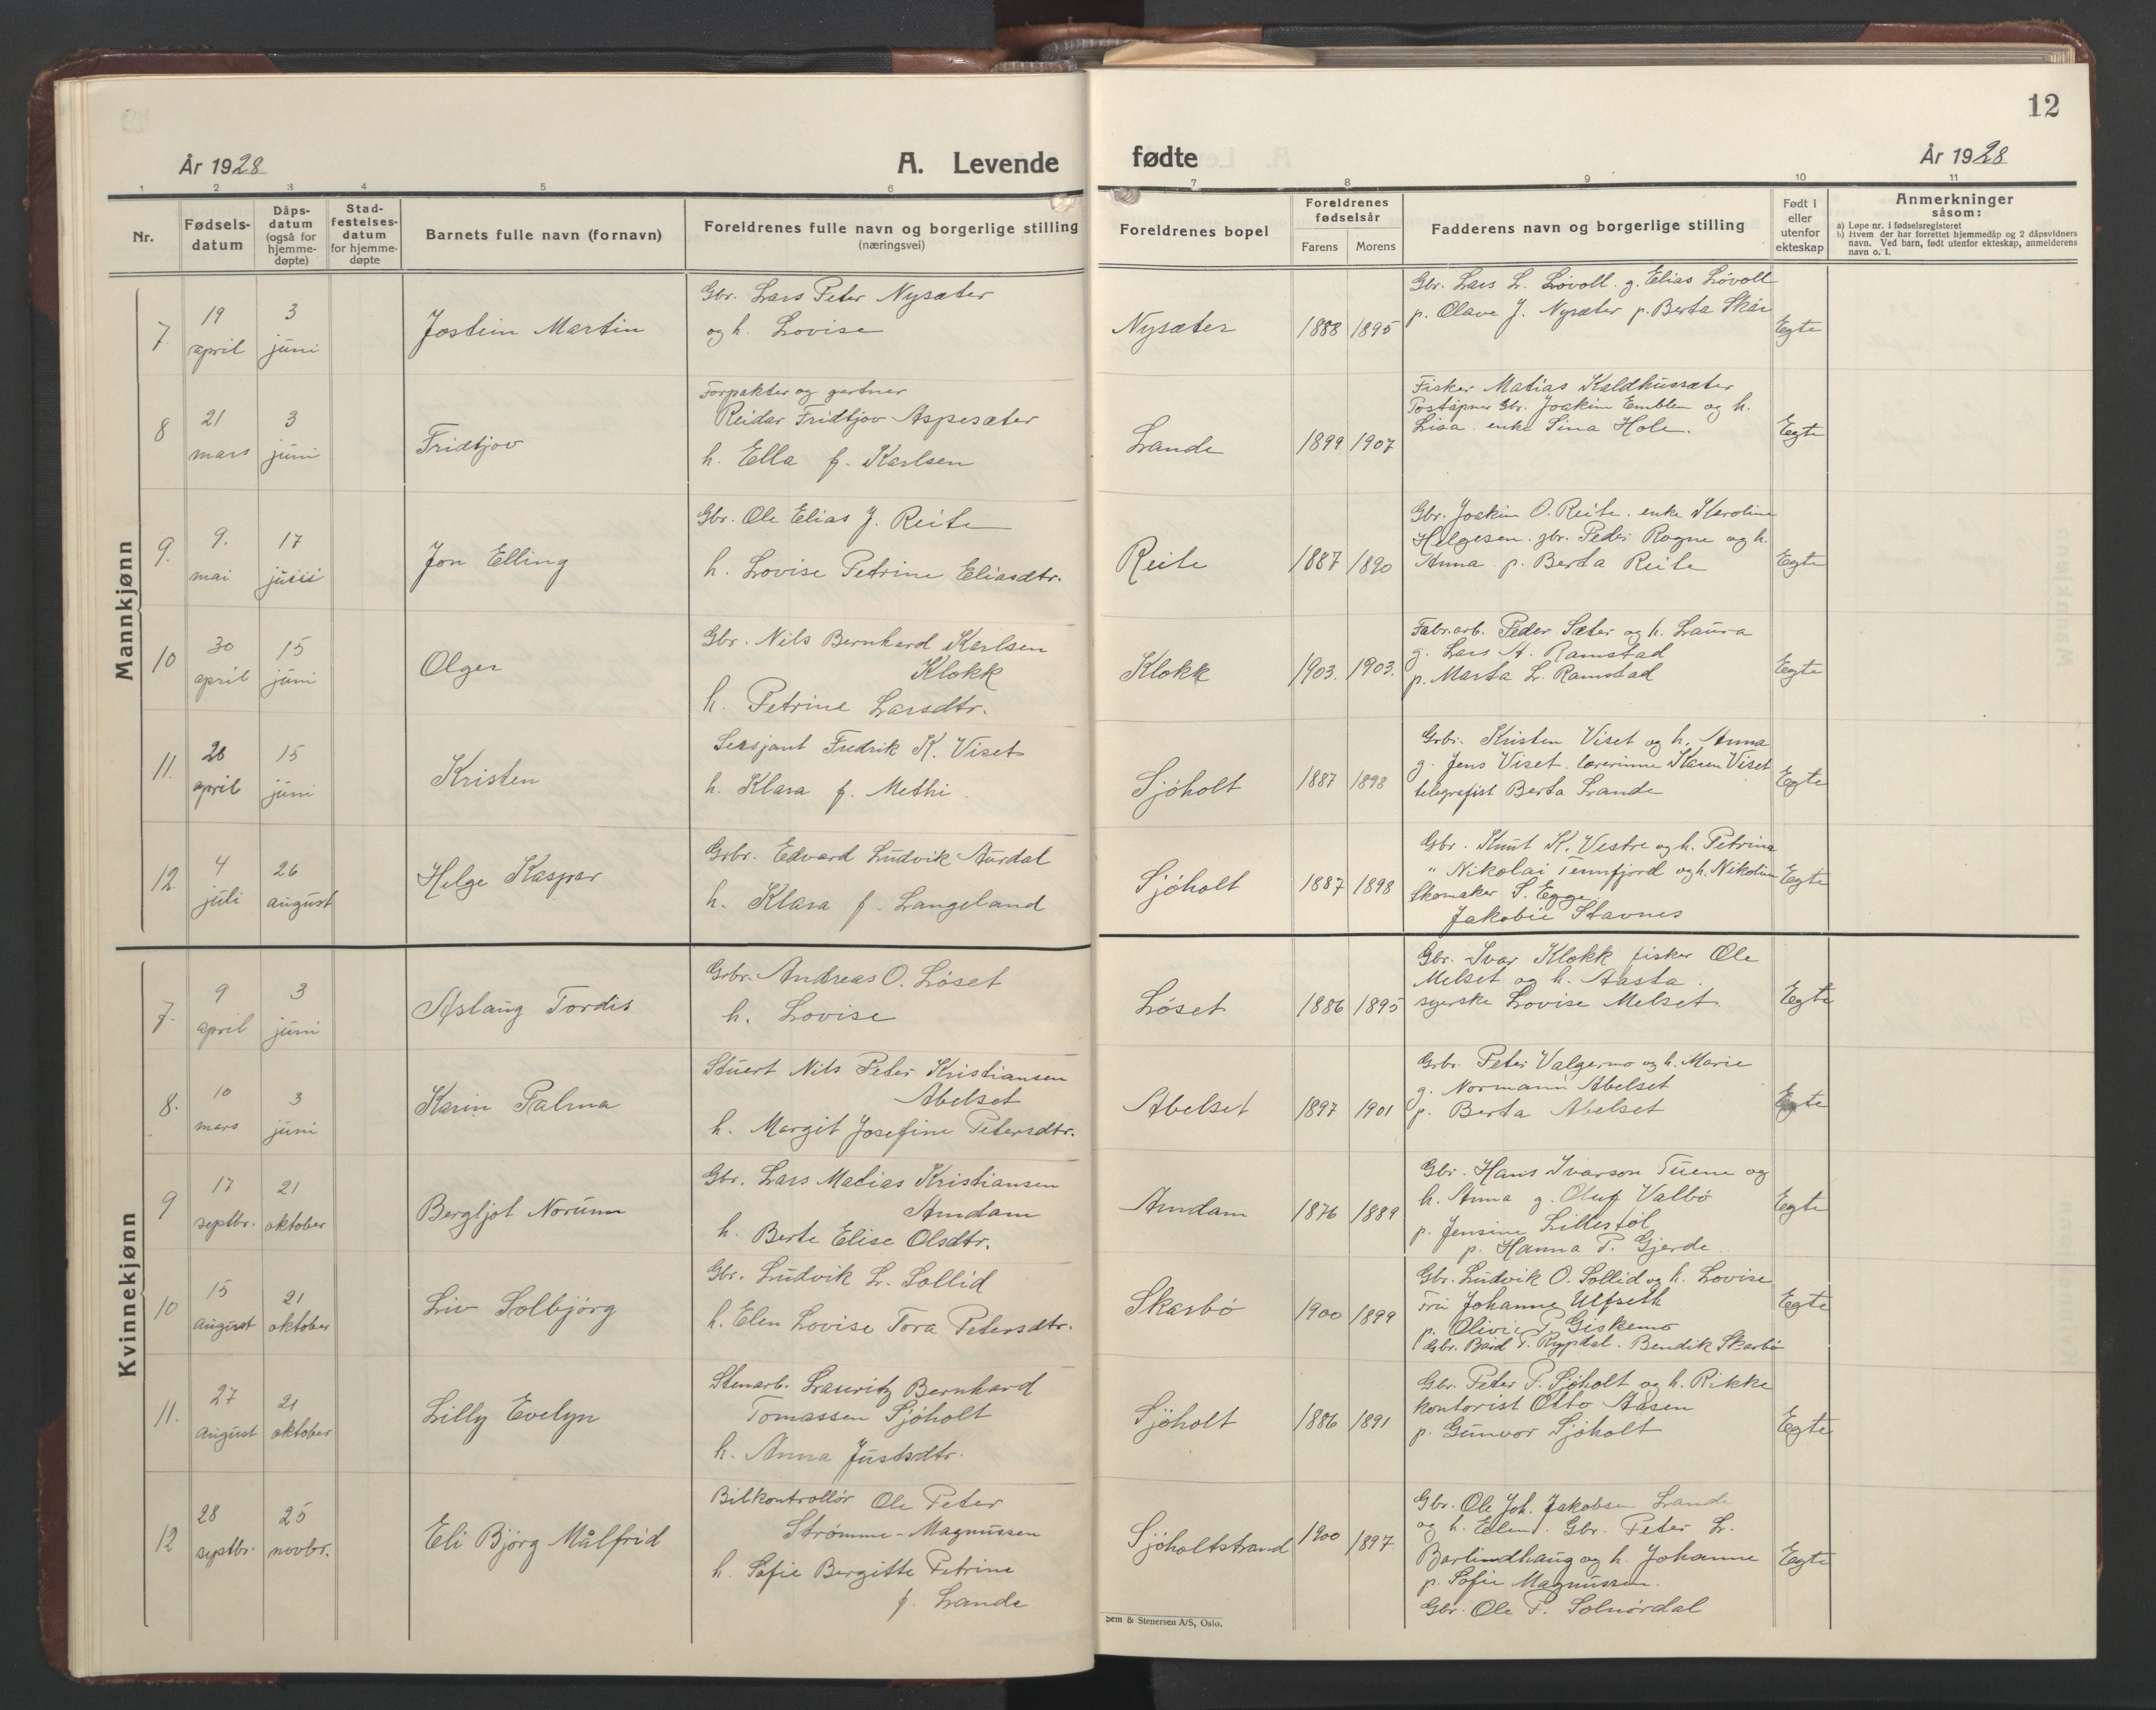 12
År 1928
A. Levende
fødte
År 1928
1 2 3 4 5 6 7 8 9 10 11
Nr.
Fødsels-
datum
Dåps-
datum
(også for
hjemme-
døpte)
Stad-
festelses-
datum
for hjemme-
døpte
Barnets fulle navn (fornavn)
Foreldrenes fulle navn og borgerlige stilling
(næringsvei)
Foreldrenes bopel
Foreldrenes
fødselsår
Farens Morens
Fadderens navn og borgerlige stilling
Født i
eller
utenfor
ekteskap
Anmerkninger
såsom:
a) Løpe nr. i fødselsregisteret
b) Hvem der har forrettet hjemmedåp og 2 dåpsvidners
navn. Ved barn, født utenfor ekteskap, anmelderens
navn o. l.
Mannkjønn
7.
19
april
3
juni
Jostein Martin
Gbr. Lars Peter Nysæter
og h. Lovise
Nysæter
1888 1895
Gbr. Lars L. Løvoll. g. Elias Løvoll
p. Olave J. Nysæter p. Berta Skår
Egte
8
21
mars
3
juni
Fridtjov
Forpakter og gartner
Reidar Fridtjov Aspesæter
h. Ella f. Karlsen
Lande
1899 1907
Fisker Matias Kaldhussæter
Poståpner Gbr. Joakim Emblem og h.
Lisa. enke Sina Hole.
Egte
9.
9.
mai
17
juni
Jon Elling
Gbr. Ole Elias J. Reite
h. Lovise Petrine Eliasdtr.
Reite
1887 1890
Gbr. Joakim O. Reite. enke Karoline
Helgesen. gbr. Peder Rogne og h.
Anna. p. Berta Reite
Egte
10
30
april
15
juni
Olger
Gbr. Nils Bernhard Karlsen
Klokk
h. Petrine Larsdtr.
Klokk
1903. 1903.
Fabr.arb. Peder Sæter og h. Laura
g. Lars A. Ramstad
p. Marta L. Ramstad
Egte
11.
26
april
15
juni
Kristen
Sersjant Fredrik K. Viset
h. Klara f. Methi
Sjøholt
1887 1898
Grbr. Kristen Viset og h. Anna
g. Jens Viset. lærerinne Karen Viset
telegrafist Berta Lande
Egte
12.
4
juli
26
august
Helge Kaspar
Grbr. Edvard Ludvik Aurdal
h. Klara f. Langeland
Sjøholt
1887 1898
Grbr. Knut K. Vestre og h. Petrina
" Nikolai Tennfjord og h. Nikoline
Skomaker S. Egge
Jakobie Stavnes
Egte
Kvinnekjønn
7.
9
april
3
juni
Aslaug Tordis
Grbr. Andreas O. Løset
h. Lovise
Løset
1886 1895
Gbr. Ivar Klokk fisker Ole
Melset og h. Aasta.
syerske Lovise Melset.
Egte
8.
10
mars
3
juni
Karin Palma
Stuert Nils Peter Kristiansen
Abelset
h. Margit Josefine Petersdtr.
Abelset
1897 1901
Grbr. Peter Valgermo og h. Marie
g. Normann Abelset
p. Berta Abelset
Egte
9
17
septbr.
21
oktober
Bergljot Norunn
Gbr. Lars Matias Kristiansen
Amdam
h. Berte Elise Olsdtr.
Amdam
1876 1889
Gbr. Hans Ivarson Tuene og
h. Anna g. Oluf Valbø
p. Jensine Lillestøl
p. Hanna P. Gjerde.
Egte
10
15
august
21
oktober
Liv Solbjørg
Gbr. Ludvik L. Sollid
h. Elen Lovise Tora Petersdtr.
Skarbø
1900 1899
Gbr. Ludvik O. Sollid og h. Lovise
Fru Johanne Ulfseth
p. Olivie P. Giskemo
Gbr. Bård P. Rypdal. Bendik Skarbø
Egte
11.
27
august
21
oktober
Lilly Evelyn
Stenarb. Lauritz Bernhard
Tomassen Sjøholt
h. Anna Justsdtr.
Sjøholt
1886 1891
Gbr. Peter P. Sjøholt og h. Rikke
kontorist Otto Aasen
p. Gunvor Sjøholt
Egte
12
28
septbr.
25
novbr.
Eli Bjørg Målfrid
Bilkontrollør Ole Peter
Strømme-Magnussen
h. Sofie Bergitte Petrine
f. Lande
Sjøholtstrand
1900 1897.
Gbr. Ole Joh. Jakobsen Lande
og h. Elen. Gbr. Peter L.
Barlindhaug og h. Johanne
p. Sofie Magnussen.
Gbr. Ole P. Solnørdal
Egte
Sem & Stenersen A/S, Oslo.